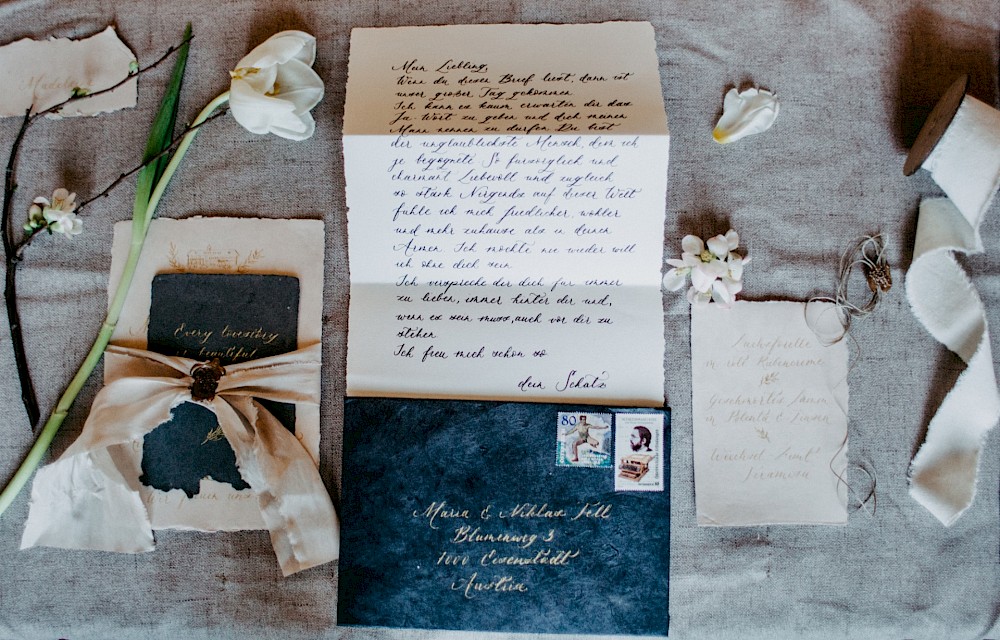 Madeleine
Every lovestory
is beautiful
Mein Liebling,
Wenn du dieser Brief liest, dann ist
unser großer Tag gekommen
Ich kann es kaum erwarten dir das
Ja-Wort zu geben und dich meinen
Mann nennen zu dürfen Du bist
der unglaublichste Mensch, dem ich
je begegnete So fürsorglich und
charmant Liebevoll und zugleich
so stark Nirgends auf dieser Welt
fühle ich mich friedlicher, wohler
und mehr zuhause als in deinen
Armen Ich möchte nie wieder will
ich ohne dich sein
Ich verspreche dir dich für immer
zu lieben, immer hinter dir und,
wenn es sein muss, auch vor dir zu
stehen
Ich freu mich schon so
dein Schatz
80
Maria & Niklas Fell
Blumenweg 3
1000 Eisenstadt
Austria
Lachsforelle
Geschmortes Lamm